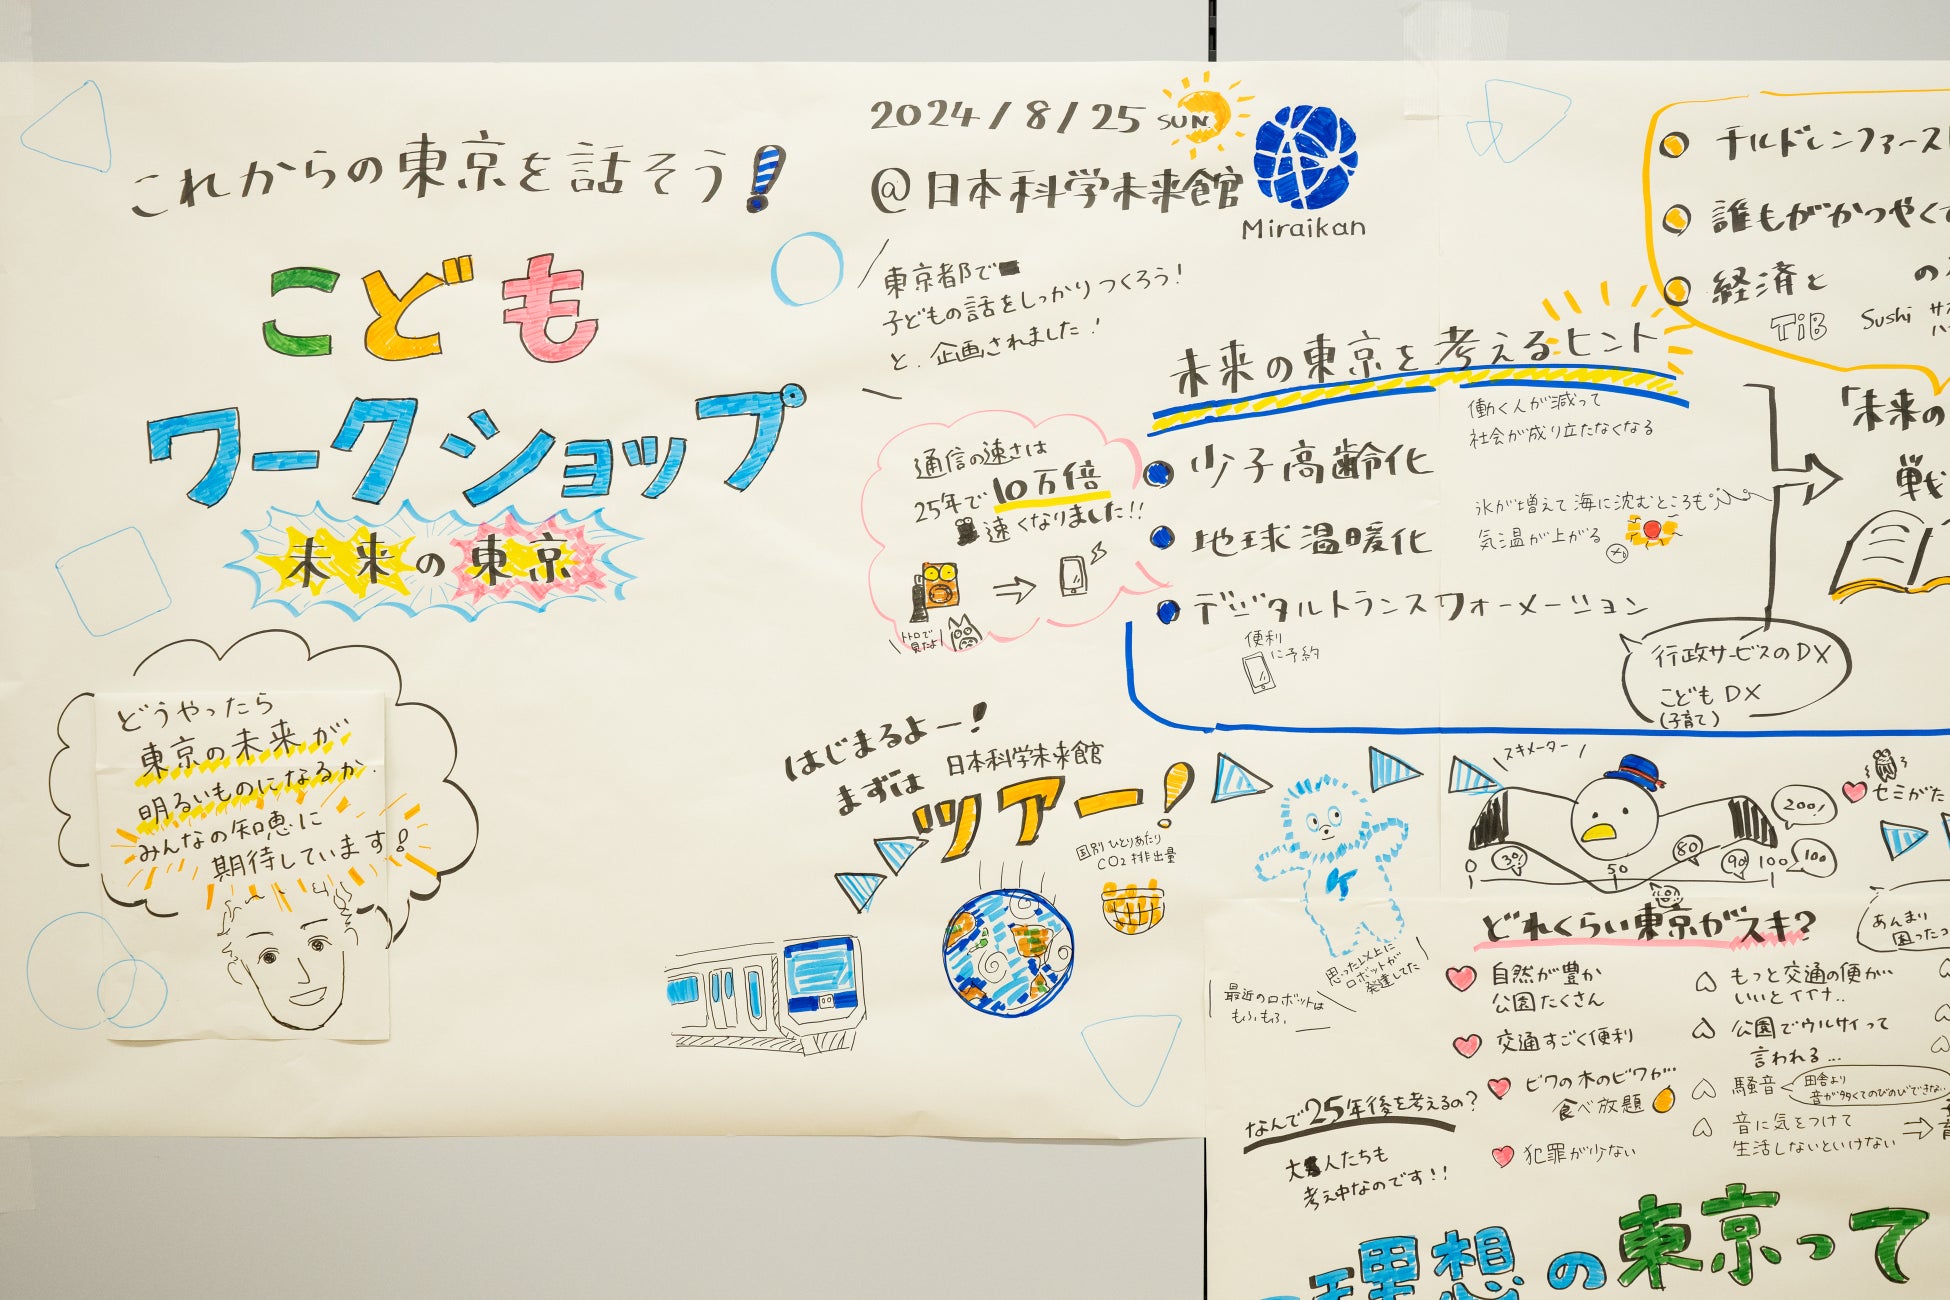 これからの東京を話そう!
こども
ワークショップ
未来の東京
どうやったら
東京の未来が
明るいものになるか.
みんなの知恵に
期待しています!
2024/8/25 SUN.
@日本科学未来館
Miraikan
東京都で
子どもの話をしっかりつくろう!
と、企画されました!
通信の速さは
25年で10万倍
速くなりました!!
トトロで
見たよ!
未来の東京を考えるヒント
働く人が減って
社会が成り立たなくなる
少子高齢化
氷が増えて海に沈むところも
気温が上がる
地球温暖化
デジタルトランスフォーメーション
便利
に予約
行政サービスのDX
こどもDX
(子育て)
チルドレンファースト
誰もがかつやくで
経済と
の
TiB
Sushi
「未来の
戦
はじまるよー!
まずは
日本科学未来館
ツアー!
国別ひとりあたり
CO2排出量
最近のロボットは
もふもふ.
思った以上に
ロボットが
発達してた
スキメーター
0
30!
50
80
90
100
100
200!
セミがた
どれくらい東京がスキ?
自然が豊か
公園たくさん
交通すごく便利
ビワの木のビワが…
食べ放題
犯罪が少ない
もっと交通の便が…
いいとイイナ..
公園でウルサイって
言われる…
騒音
田舎より
音が多くてのびのびできない..
音に気をつけて
生活しないといけない
あんまり
困った
なんで25年後を考えるの?
大人たちも
考え中なのです!!
理想の東京って